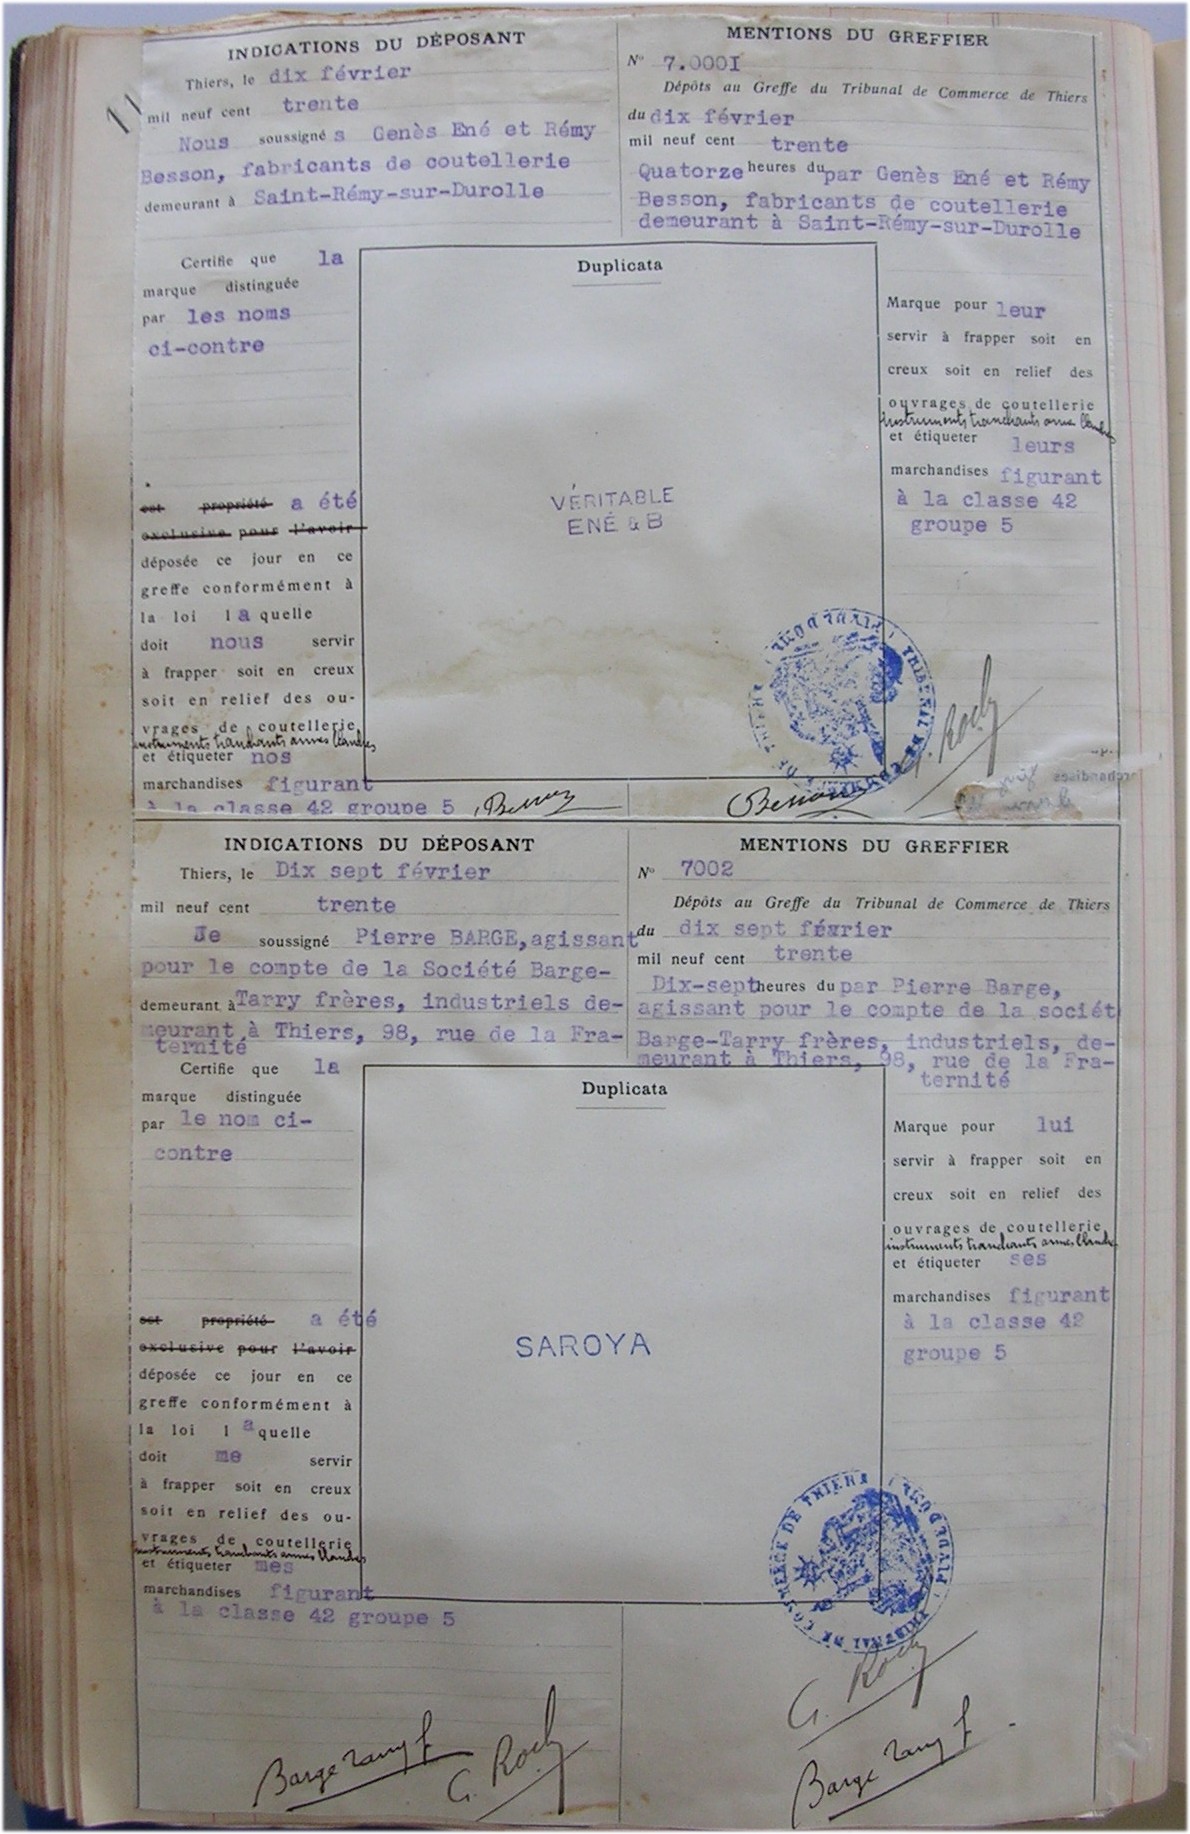 11
INDICATIONS DU DÉPOSANT
Thiers, le dix février
mil neuf cent trente
Nous soussigné s Genès Ené et Rémy
Besson, fabricants de coutellerie
demeurant à Saint-Rémy-sur-Durolle
MENTIONS DU GREFFIER
N° 7.0001
Dépôts au Greffe du Tribunal de Commerce de Thiers
du dix février
mil neuf cent trente
Quatorze heures du par Genès Ené et Rémy
Besson, fabricants de coutellerie
demeurant à Saint-Rémy-sur-Durolle
Certifie que la
marque distinguée
par les noms
ci-contre
est propriété a été
exclusive pour l'avoir
déposée ce jour en ce
greffe conformément à
la loi la quelle
doit nous servir
à frapper soit en creux
soit en relief des ou-
vrages de coutellerie
instruments tranchants armes blanches
et étiqueter nos
marchandises figurant
à la classe 42 groupe 5
Duplicata
VÉRITABLE
ENÉ & B
Marque pour leur
servir à frapper soit en
creux soit en relief des
ouvrages de coutellerie
instruments tranchants armes blanches
et étiqueter leurs
marchandises figurant
à la classe 42
groupe 5
TRIBUNAL DE COMMERCE DE THIERS (PUY DE DOME)
G. Rochy
Besson
Besson
INDICATIONS DU DÉPOSANT
Thiers, le Dix sept février
mil neuf cent trente
Je soussigné Pierre BARGE, agissant
pour le compte de la Société Barge-
demeurant à Tarry frères, industriels de-
meurant à Thiers, 98, rue de la Fra-
ternité
MENTIONS DU GREFFIER
N° 7002
Dépôts au Greffe du Tribunal de Commerce de Thiers
du dix sept février
mil neuf cent trente
Dix-sept heures du par Pierre Barge,
agissant pour le compte de la sociét
Barge-Tarry frères, industriels, de-
meurant à Thiers, 98, rue de la Fra-
ternité
Certifie que la
marque distinguée
par le nom ci-
contre
est propriété a été
exclusive pour l'avoir
déposée ce jour en ce
greffe conformément à
la loi l a quelle
doit me servir
à frapper soit en creux
soit en relief des ou-
vrages de coutellerie
instruments tranchants armes blanches
et étiqueter mes
marchandises figurant
à la classe 42 groupe 5
Duplicata
SAROYA
Marque pour lui
servir à frapper soit en
creux soit en relief des
ouvrages de coutellerie
instruments tranchants armes blanches
et étiqueter ses
marchandises figurant
à la classe 42
groupe 5
TRIBUNAL DE COMMERCE DE THIERS (PUY DE DOME)
G. Rochy
Barge Tarry f
G. Rochy
Barge Tarry f